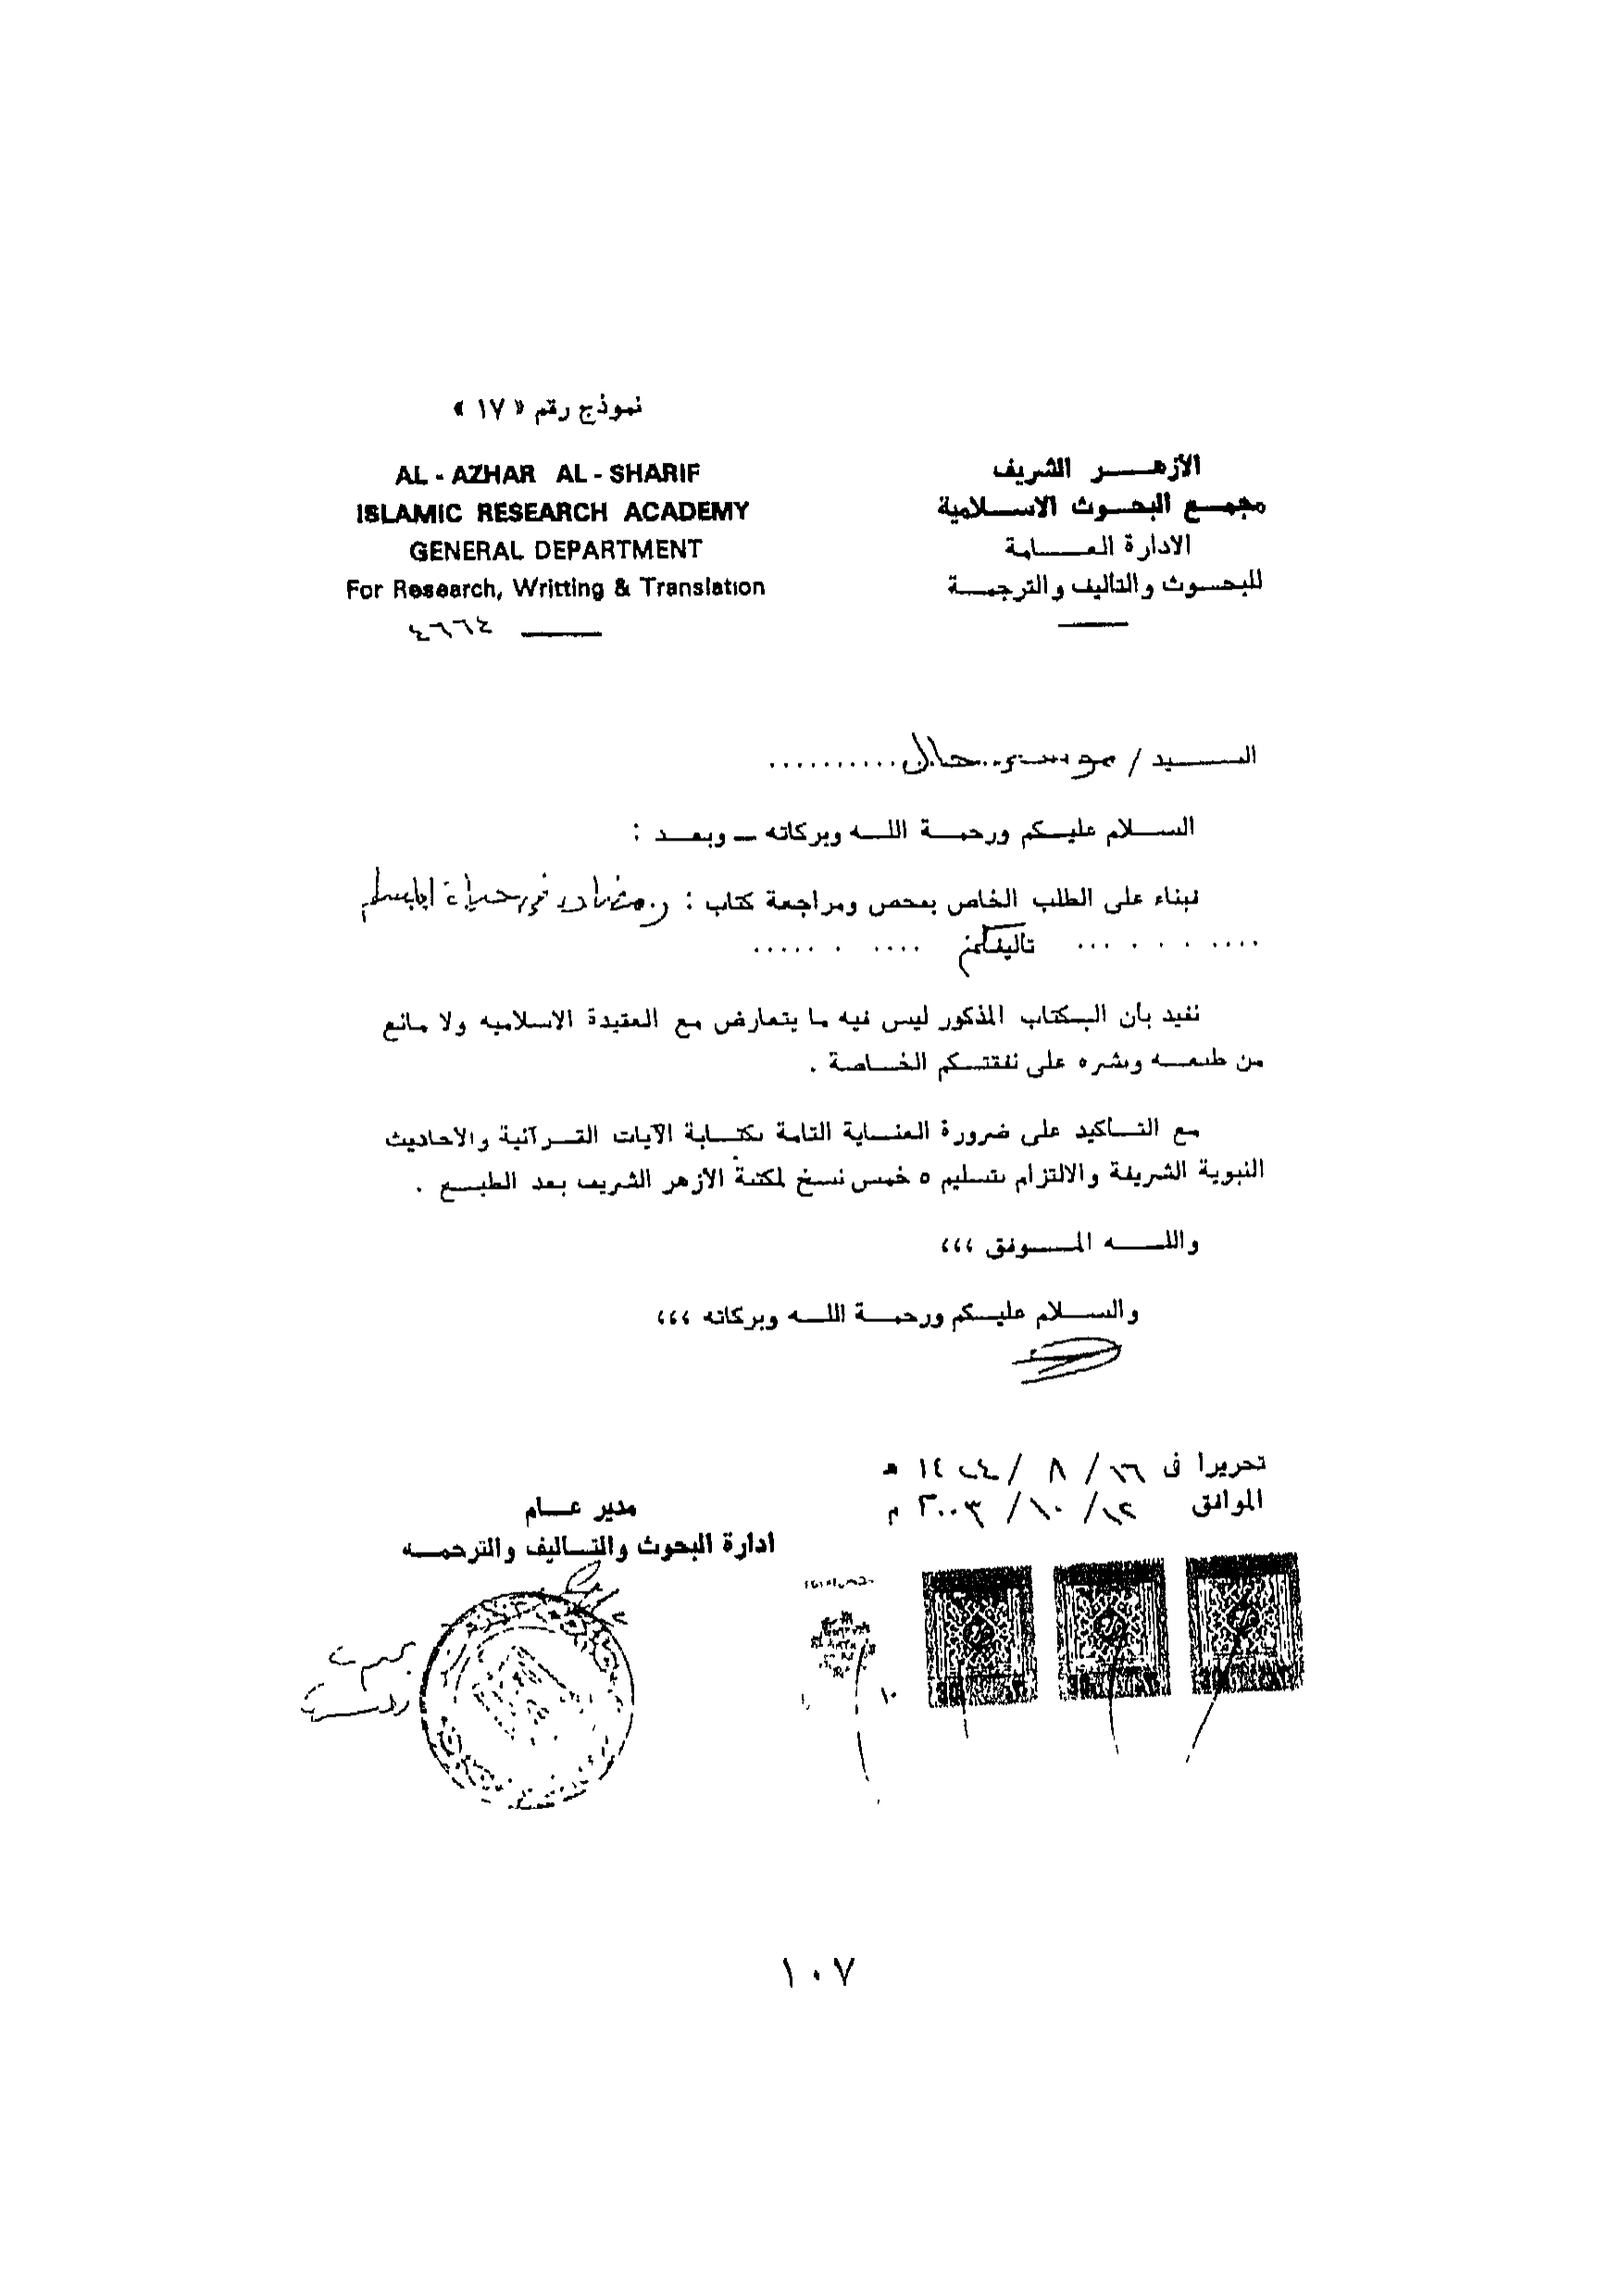 نموذج رقم « ١٧ »
الأزهـــر الشريف
مجمع البحوث الاسلامية
الادارة العـــامة
للبحــوث والتأليف والترجمــة
AL - AZHAR AL - SHARIF
ISLAMIC RESEARCH ACADEMY
GENERAL DEPARTMENT
For Research, Writting & Translation
٤٦٦٤
الســـيد /
الســلام عليـكم ورحمــة اللــه وبركاته ــ وبعــد :
فبناء على الطلب الخاص بفحص ومراجعة كتاب : رمضان في حياة المسلم
تأليفكم
نفيد بأن الـكتاب المذكور ليس فيه ما يتعارض مع العقيدة الاسلاميه ولا مانع
من طبعــه ونشره على نفقتــكم الخــاصة .
مع التــأكيد على ضرورة العنــاية التامة بكتــابة الآيات القــرآنية والاحاديث
النبوية الشريفة والالتزام بتسليم ٥ خمس نسخ لمكتبة الأزهر الشريف بعد الطبــع .
واللـــه المـــوفق ،،،
والســلام عليــكم ورحمــة اللــه وبركاته ،،،
تحريرا فى ١٦ / ٨ / ١٤٢٤ هـ
الموافق ١٢ / ١٠ / ٢٠٠٣ م
مدير عـــام
ادارة البحوث والتــأليف والترجمــه
١٠
١٠٧